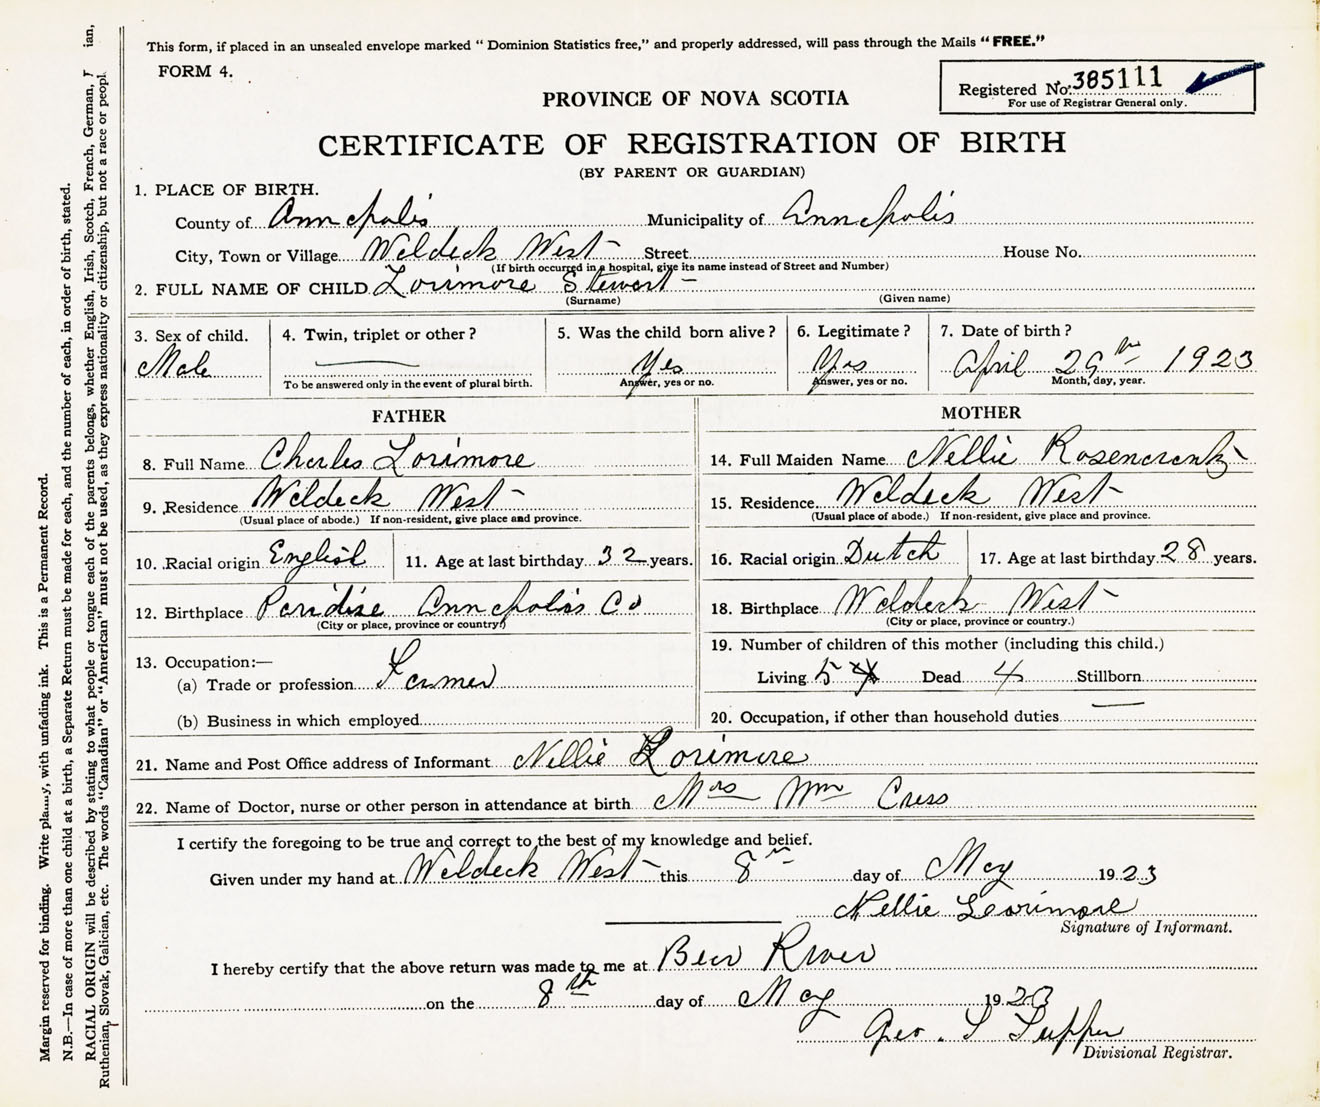 This form, if placed in an unsealed envelope marked “ Dominion Statistics free,” and properly addressed, will pass through the Mails “ FREE.”
FORM 4.
Registered No. 385111
For use of Registrar General only.
PROVINCE OF NOVA SCOTIA
CERTIFICATE OF REGISTRATION OF BIRTH
(BY PARENT OR GUARDIAN)
1. PLACE OF BIRTH.
County of Annapolis Municipality of Annapolis
City, Town or Village Weldeck West Street House No.
(If birth occurred in a hospital, give its name instead of Street and Number)
2. FULL NAME OF CHILD Lorimore Stewart
(Surname) (Given name)
3. Sex of child. 4. Twin, triplet or other ? 5. Was the child born alive ? 6. Legitimate ? 7. Date of birth ?
Male — Yes Yes April 29th 1923
To be answered only in the event of plural birth. Answer, yes or no. Answer, yes or no. Month, day, year.
FATHER MOTHER
8. Full Name Charles Lorimore 14. Full Maiden Name Nellie Rosencrantz
9. Residence Weldeck West 15. Residence Weldeck West
(Usual place of abode.) If non-resident, give place and province. (Usual place of abode.) If non-resident, give place and province.
10. Racial origin English 11. Age at last birthday 32 years. 16. Racial origin Dutch 17. Age at last birthday 28 years.
12. Birthplace Paradise Annapolis Co 18. Birthplace Weldeck West
(City or place, province or country.) (City or place, province or country.)
19. Number of children of this mother (including this child.)
13. Occupation:—
(a) Trade or profession Farmer Living 5 Dead 4 Stillborn
(b) Business in which employed 20. Occupation, if other than household duties —
21. Name and Post Office address of Informant Nellie Lorimore
22. Name of Doctor, nurse or other person in attendance at birth Mrs Wm Cress
I certify the foregoing to be true and correct to the best of my knowledge and belief.
Given under my hand at Weldeck West this 8th day of May 1923
Nellie Lorimore
Signature of Informant.
I hereby certify that the above return was made to me at Bear River
on the 8th day of May 1923
Geo. S Tupper
Divisional Registrar.
Margin reserved for binding. Write plainly, with unfading ink. This is a Permanent Record.
N.B.—In case of more than one child at a birth, a Separate Return must be made for each, and the number of each, in order of birth, stated.
RACIAL ORIGIN will be described by stating to what people or tongue each of the parents belongs, whether English, Irish, Scotch, French, German, ian,
Ruthenian, Slovak, Galician, etc. The words “Canadian” or “American” must not be used, as they express nationality or citizenship, but not a race or peopl